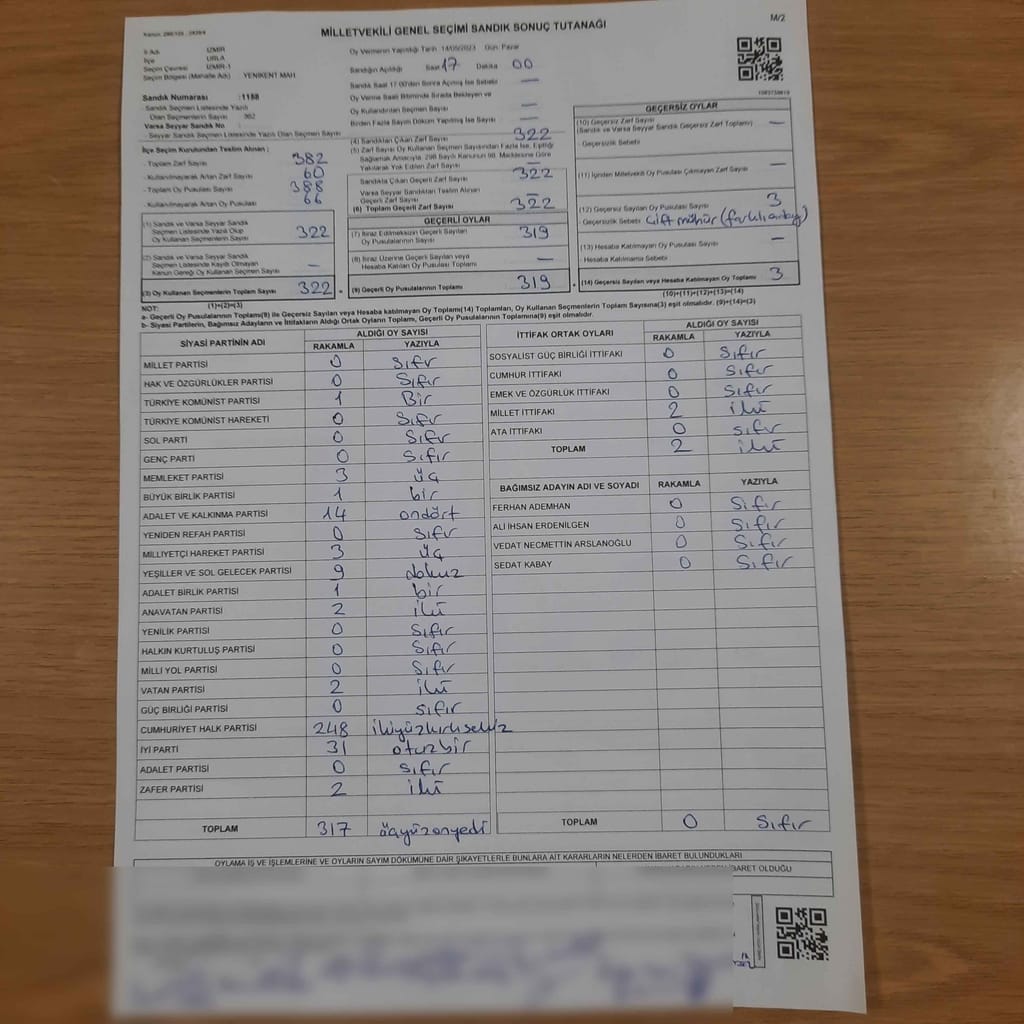 MİLLETVEKİLİ GENEL SEÇİMİ SANDIK SONUÇ TUTANAĞI
M/2
İl Adı İZMİR
İlçe URLA
Seçim Çevresi İZMİR-1
Seçim Bölgesi (Mahalle Adı) YENİKENT MAH
Oy Vermenin Yapıldığı Tarih 14/05/2023 Gün: Pazar
Sandığın Açıldığı Saat 17 Dakika 00
Sandık Saat 17.00'den Sonra Açılmış İse Sebebi —
Oy Verme Saati Bitiminde Sırada Bekleyen ve
Oy Kullandırılan Seçmen Sayısı —
Birden Fazla Sayım Döküm Yapılmış İse Sayısı —
Sandık Numarası :1158
Sandık Seçmen Listesinde Yazılı
Olan Seçmenlerin Sayısı 362
Varsa Seyyar Sandık No
Seyyar Sandık Seçmen Listesinde Yazılı Olan Seçmen Sayısı
İlçe Seçim Kurulundan Teslim Alınan ;
- Toplam Zarf Sayısı 382
- Kullanılmayarak Artan Zarf Sayısı 60
- Toplam Oy Pusulası Sayısı 388
- Kullanılmayarak Artan Oy Pusulası 66
(1) Sandık ve Varsa Seyyar Sandık
Seçmen Listesinde Yazılı Olup
Oy Kullanan Seçmenlerin Sayısı 322
(2) Sandık ve Varsa Seyyar Sandık
Seçmen Listesinde Kayıtlı Olmayan
Kanun Gereği Oy Kullanan Seçmen Sayısı —
(3) Oy Kullanan Seçmenlerin Toplam Sayısı 322
(1)+(2)=(3)
(4) Sandıktan Çıkan Zarf Sayısı 322
(5) Zarf Sayısı Oy Kullanan Seçmen Sayısından Fazla İse, Eşitliği
Sağlamak Amacıyla, 298 Sayılı Kanunun 98. Maddesine Göre
Yakılarak Yok Edilen Zarf Sayısı —
Sandıkta Çıkan Geçerli Zarf Sayısı 322
Varsa Seyyar Sandıktan Teslim Alınan
Geçerli Zarf Sayısı —
(6) Toplam Geçerli Zarf Sayısı 322
GEÇERLİ OYLAR
(7) İtiraz Edilmeksizin Geçerli Sayılan
Oy Pusulasının Sayısı 319
(8) İtiraz Üzerine Geçerli Sayılan veya
Hesaba Katılan Oy Pusulası Toplamı —
(9) Geçerli Oy Pusulalarının Toplamı 319
GEÇERSİZ OYLAR
(10) Geçersiz Zarf Sayısı
(Sandık ve Varsa Seyyar Sandık Geçersiz Zarf Toplamı) —
- Geçersizlik Sebebi
(11) İçinden Milletvekili Oy Pusulası Çıkmayan Zarf Sayısı —
(12) Geçersiz Sayılan Oy Pusulası Sayısı 3
- Geçersizlik Sebebi Çift mühür (farklı aday)
(13) Hesaba Katılmayan Oy Pusulası Sayısı —
Hesaba Katılmama Sebebi
(14) Geçersiz Sayılan veya Hesaba Katılmayan Oy Toplamı 3
(10)+(11)+(12)+(13)=(14)
NOT:
a- Geçerli Oy Pusulalarının Toplamı(9) ile Geçersiz Sayılan veya Hesaba katılmayan Oy Toplamı(14) Toplamları, Oy Kullanan Seçmenlerin Toplam Sayısına(3) eşit olmalıdır. (9)+(14)=(3)
b- Siyasi Partilerin, Bağımsız Adayların ve İttifakların Aldığı Ortak Oyların Toplamı, Geçerli Oy Pusulalarının Toplamına(9) eşit olmalıdır.
SİYASİ PARTİNİN ADI ALDIĞI OY SAYISI
RAKAMLA YAZIYLA
MİLLET PARTİSİ 0 Sıfır
HAK VE ÖZGÜRLÜKLER PARTİSİ 0 Sıfır
TÜRKİYE KOMÜNİST PARTİSİ 1 Bir
TÜRKİYE KOMÜNİST HAREKETİ 0 Sıfır
SOL PARTİ 0 Sıfır
GENÇ PARTİ 0 Sıfır
MEMLEKET PARTİSİ 3 üç
BÜYÜK BİRLİK PARTİSİ 1 bir
ADALET VE KALKINMA PARTİSİ 14 ondört
YENİDEN REFAH PARTİSİ 0 Sıfır
MİLLİYETÇİ HAREKET PARTİSİ 3 üç
YEŞİLLER VE SOL GELECEK PARTİSİ 9 dokuz
ADALET BİRLİK PARTİSİ 1 bir
ANAVATAN PARTİSİ 2 iki
YENİLİK PARTİSİ 0 Sıfır
HALKIN KURTULUŞ PARTİSİ 0 Sıfır
MİLLİ YOL PARTİSİ 0 Sıfır
VATAN PARTİSİ 2 iki
GÜÇ BİRLİĞİ PARTİSİ 0 sıfır
CUMHURİYET HALK PARTİSİ 248 ikiyüzkırksekiz
İYİ PARTİ 31 otuzbir
ADALET PARTİSİ 0 sıfır
ZAFER PARTİSİ 2 iki
TOPLAM 317 üçyüzonyedi
İTTİFAK ORTAK OYLARI ALDIĞI OY SAYISI
RAKAMLA YAZIYLA
SOSYALİST GÜÇ BİRLİĞİ İTTİFAKI 0 Sıfır
CUMHUR İTTİFAKI 0 Sıfır
EMEK VE ÖZGÜRLÜK İTTİFAKI 0 Sıfır
MİLLET İTTİFAKI 2 iki
ATA İTTİFAKI 0 sıfır
TOPLAM 2 iki
BAĞIMSIZ ADAYIN ADI VE SOYADI RAKAMLA YAZIYLA
FERHAN ADEMHAN 0 Sıfır
ALİ İHSAN ERDENİLGEN 0 Sıfır
VEDAT NECMETTİN ARSLANOĞLU 0 Sıfır
SEDAT KABAY 0 Sıfır
TOPLAM 0 Sıfır
OYLAMA İŞ VE İŞLEMLERİNE VE OYLARIN SAYIM DÖKÜMÜNE DAİR ŞİKAYETLERLE BUNLARA AİT KARARLARIN NELERDEN İBARET BULUNDUKLARI
İBARET OLDUĞU